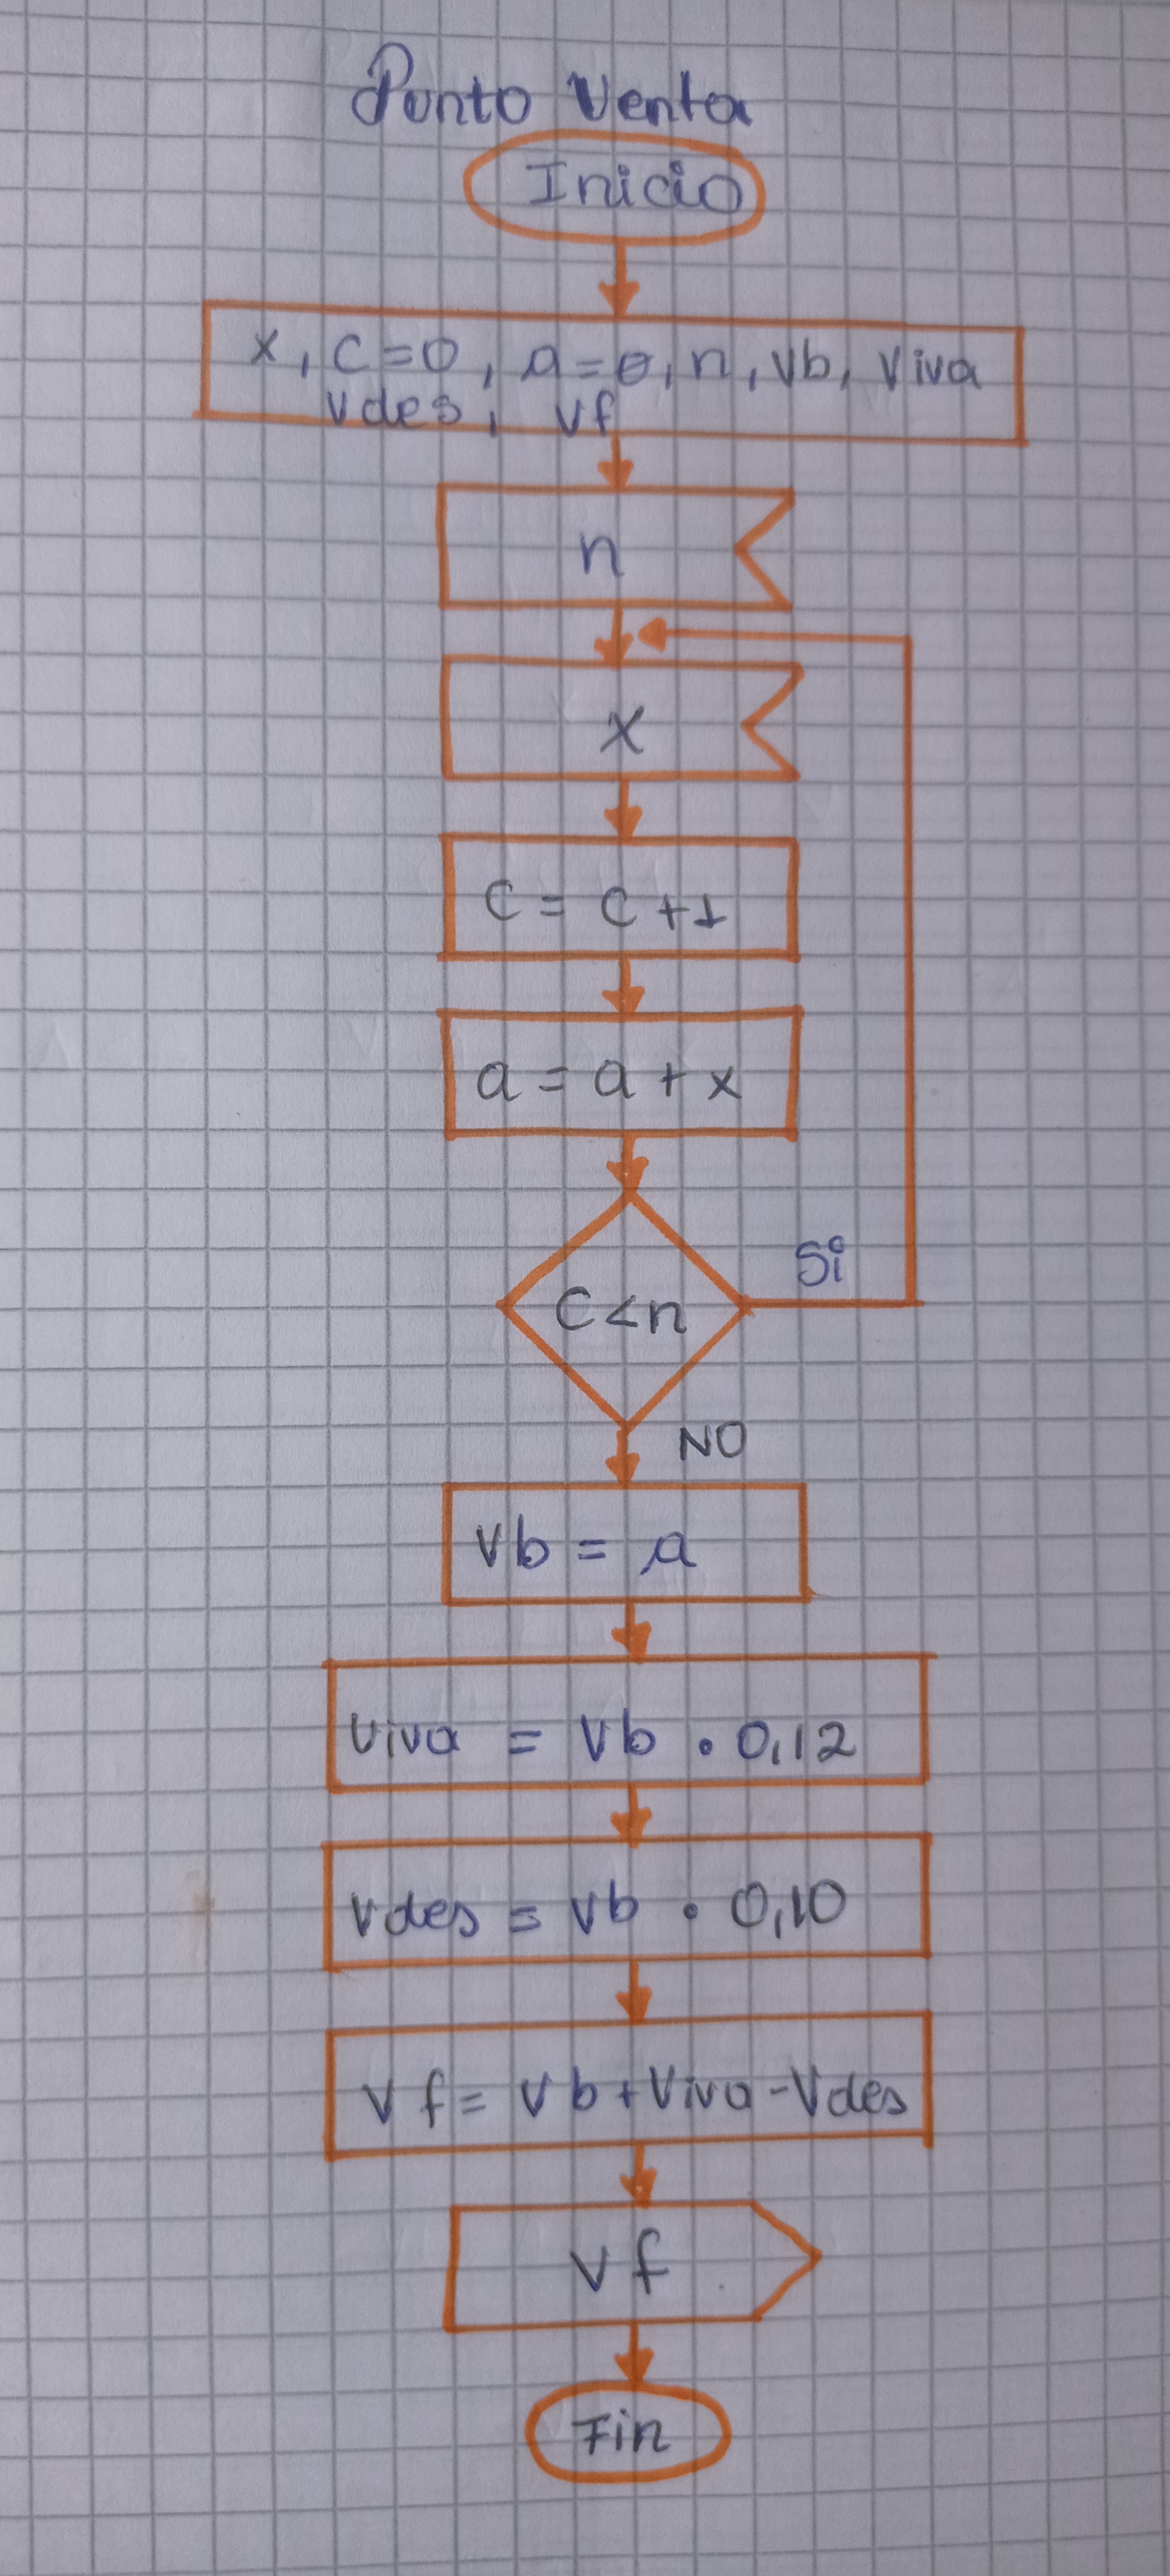 Punto Venta
Inicio
x, c=0, a=0, n, vb, viva
vdes, vf
n
x
c = c +1
a = a + x
C<n
Si
NO
vb = a
viva = vb • 0,12
vdes = vb • 0,10
vf = vb+viva-vdes
vf
Fin